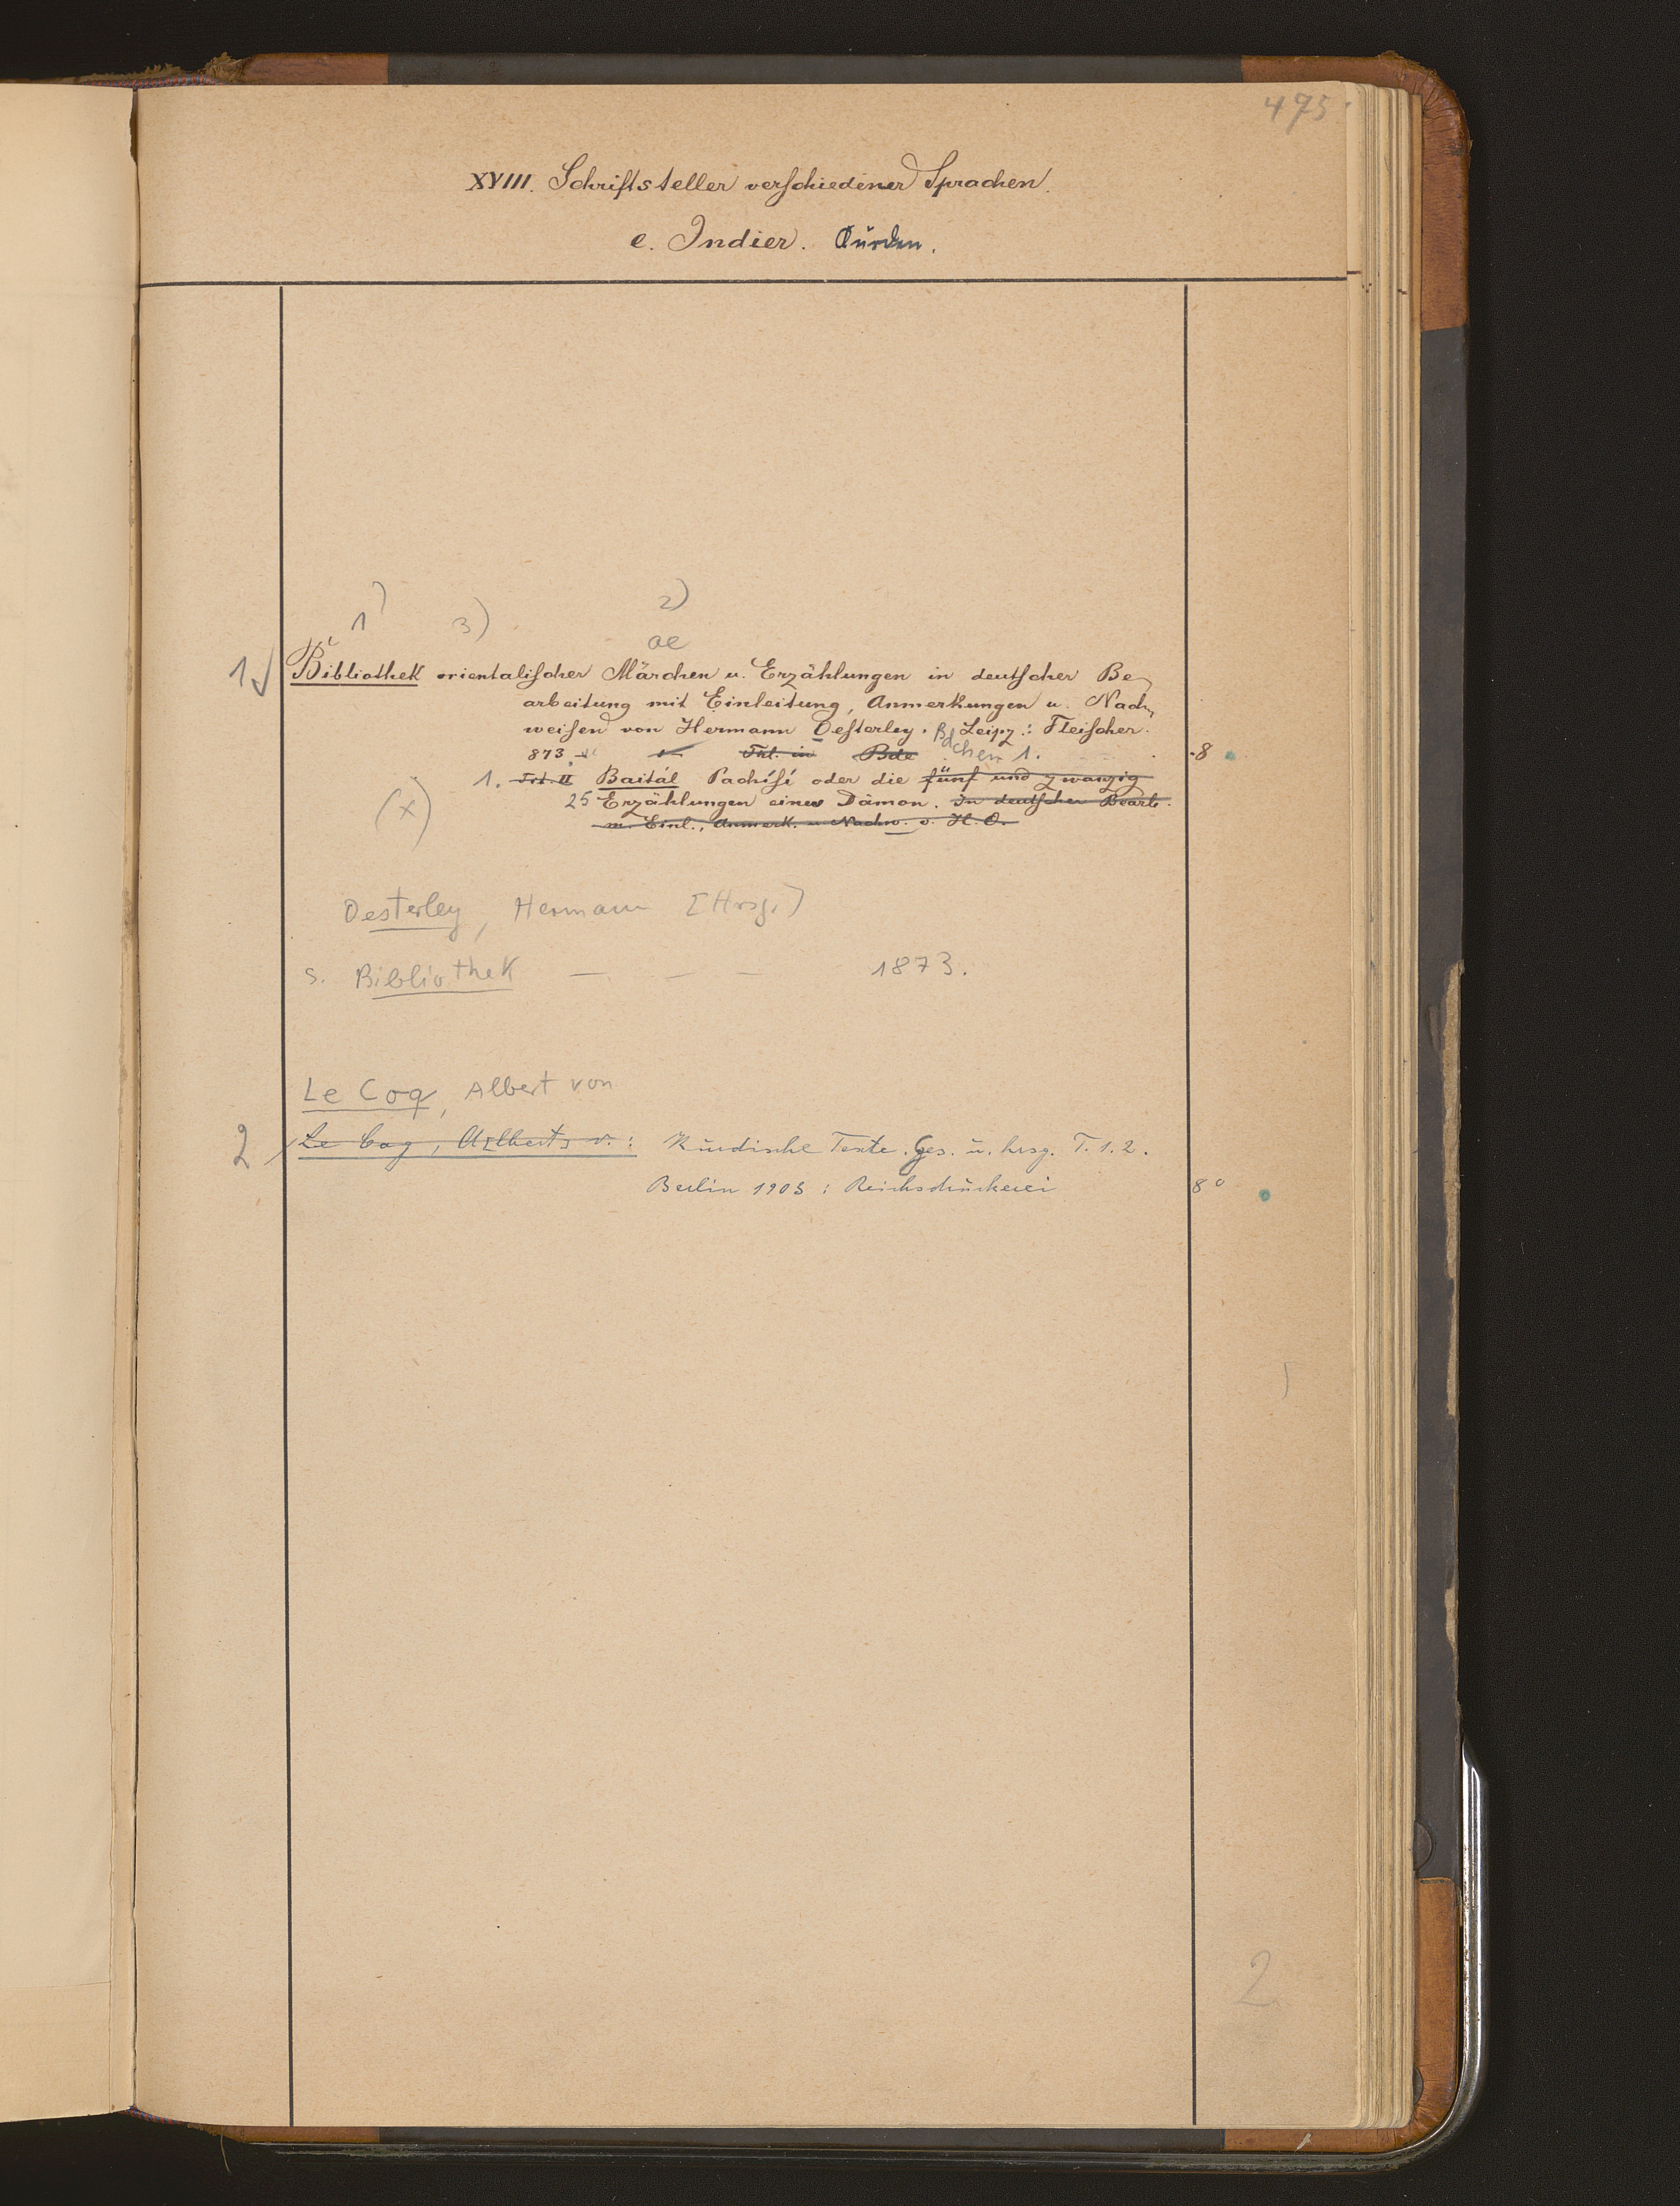 475
XVIII. Schriftsteller verschiedener Sprachen.
e. Indier. Kurden.
1) 3) 2)
ae
1 Bibliothek orientalischer Märchen u. Erzählungen in deutscher Be-
arbeitung mit Einleitung, Anmerkungen u. Nach-
weisen von Hermann Oesterley. Bdchen 1. Leipz.: Fleischer.
873. Tit. in Bde 8
1. Tit. II Baitál Pachísí oder die fünf und zwanzig
(x) 25 Erzählungen eines Dämon. In deutscher Bearb.
m. Einl., Anmerk. u. Nachw. v. H. O.
Oesterley, Hermann [Hrsg.]
s. Bibliothek — — — 1873.
Le Coq, Albert von
2 Le Coq, Albert v.: Kurdische Texte. Ges. u. hrsg. T. 1. 2.
Berlin 1903: Reichsdruckerei 8°
2